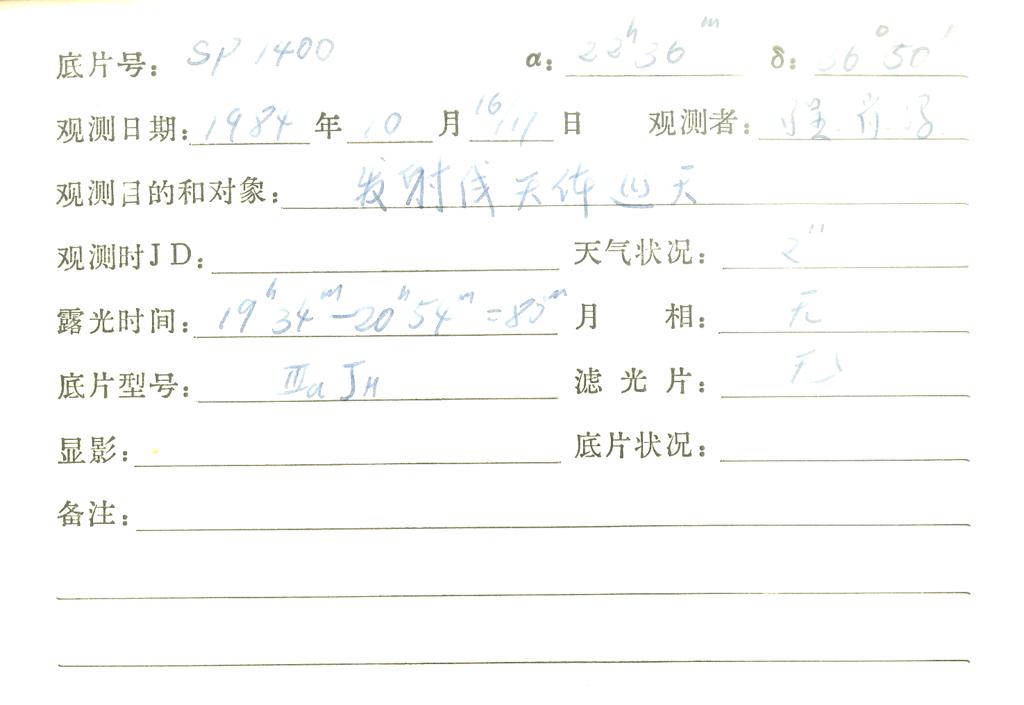 底片号: SP 1400 α: 22ʰ36ᵐ δ: 36°50′
观测日期: 1984 年 10 月 16/17 日 观测者:
观测目的和对象: 发射线天体巡天
观测时JD: 天气状况: 2″
露光时间: 19ʰ34ᵐ—20ʰ54ᵐ= 月 相: 无
底片型号: ⅢaJH 滤光片: 无
显影: 底片状况:
备注: